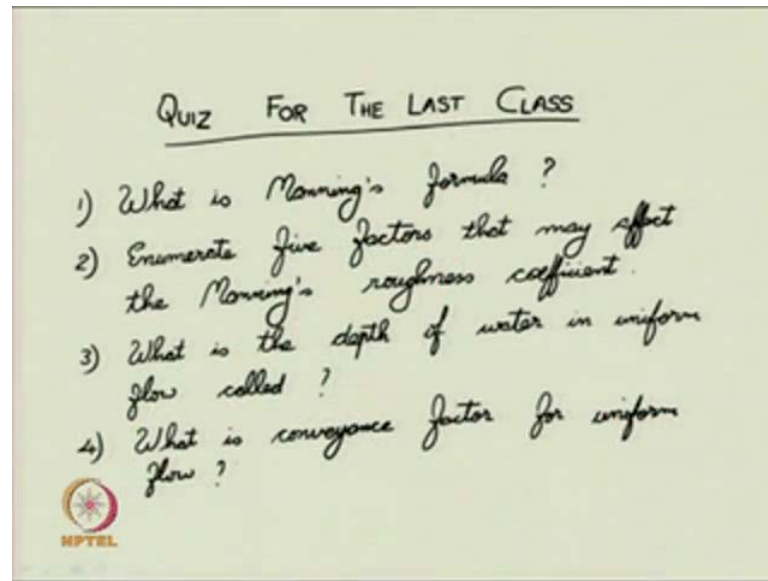 QUIZ FOR THE LAST CLASS
1) What is Manning's formula ?
2) Enumerate five factors that may affect
the Manning's roughness coefficient.
3) What is the depth of water in uniform
flow called ?
4) What is conveyance factor for uniform
flow ?
NPTEL